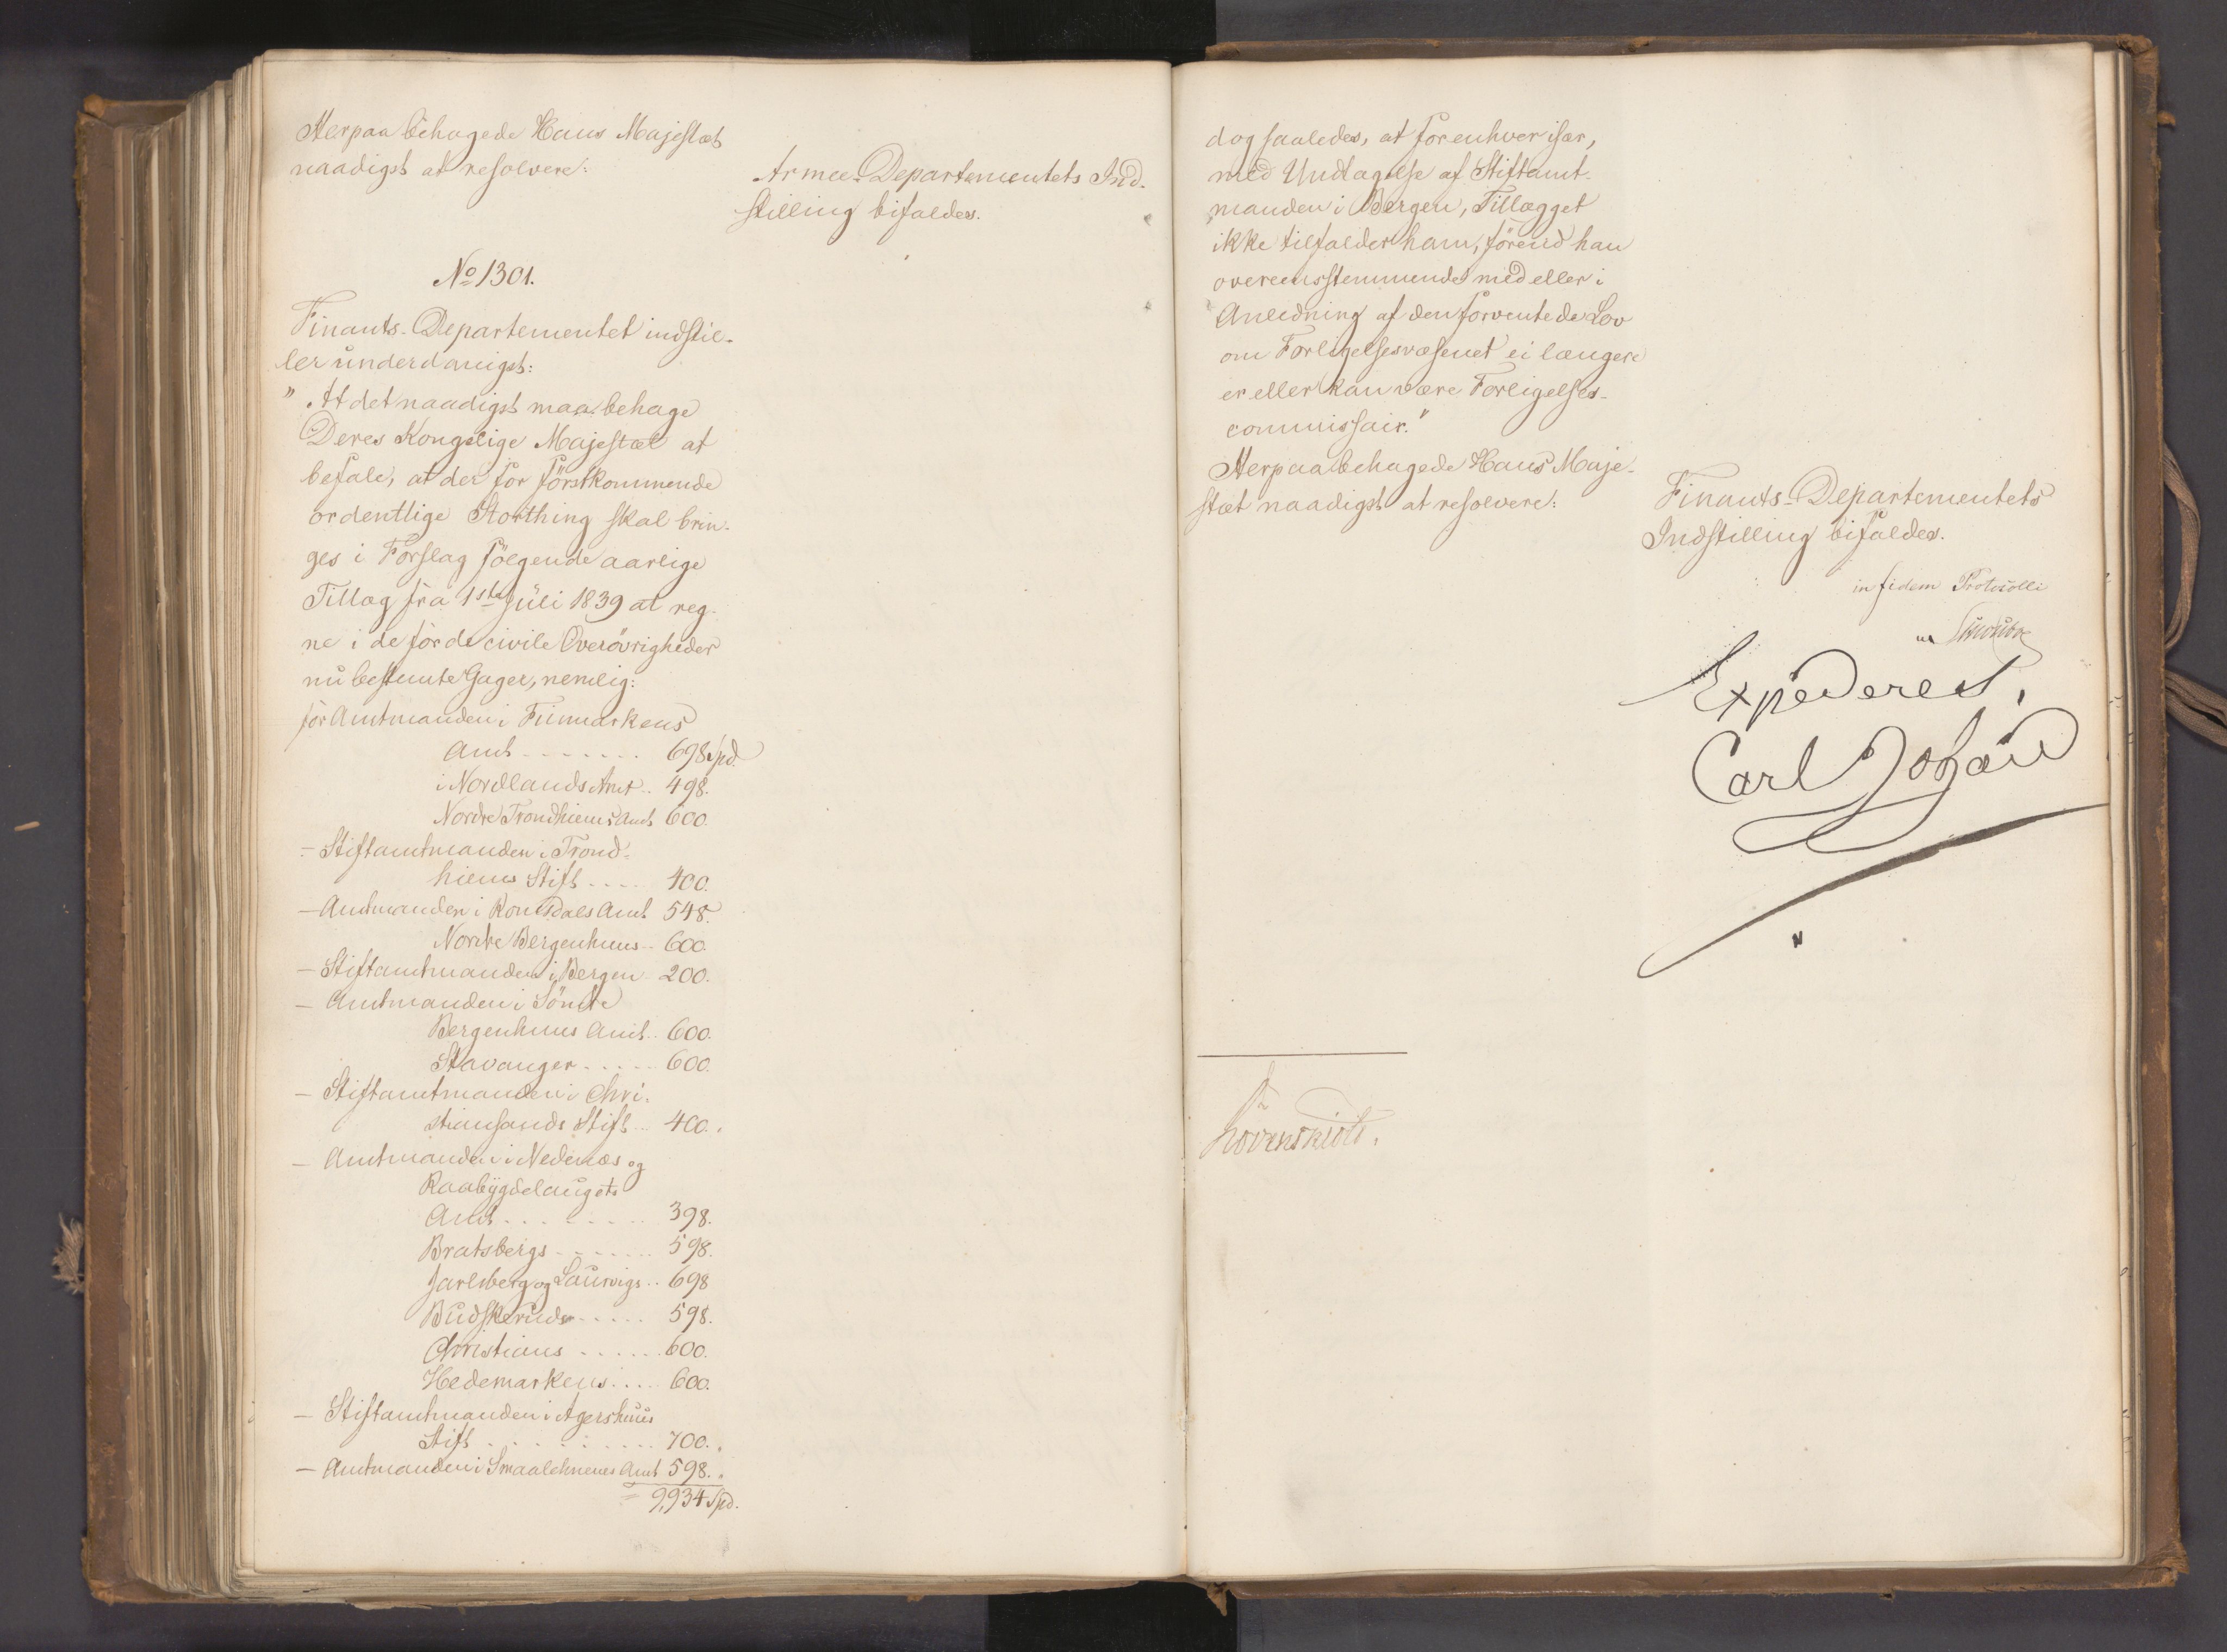 Herpaa behagede Hans Majestæt
naadigst at resolvere:
Armee-Departementets Ind-
stilling bifaldes.
No 1301.
Finants-Departementet indstil-
ler underdanigst:
"At det naadigst maa behage
Deres Kongelige Majestæt at
befale, at der for förstkommende
ordentlige Storthing skal brin-
ges i Forslag fölgende aarlige
Tillæg fra 1ste Juli 1839 at reg-
ne i de for de civile Overövrigheder
nu bestemte Gager, nemlig:
for Amtmanden i Finmarkens
Amt - - - - - - - 698 Spd.
i Nordlands Amt .. 498.
Nordre Trondhiems Amt 600.
- Stiftamtmanden i Trond-
hiems Stift - - - - 400.
- Amtmanden i Romsdals Amt 548.
Nordre Bergenhuus - - 600.
- Stiftamtmanden i Bergen - 200.
- Amtmanden i Söndre
Bergenhuus Amt .. 600.
Stavanger - - - - - 600.
- Stiftamtmanden i Chri-
stiansands Stift ... 400.
- Amtmanden i Nedenæs og
Raabygdelaugets
Amt - - - - - - - 398.
Bratsbergs - - - - - - 598.
Jarlsberg og Laurvigs .. 698
Budskeruds - - - - - 598.
Christians - - - - - - 600.
Hedemarkens .... 600.
- Stiftamtmanden i Agershuus
Stift - - - - - - - - 700.
- Amtmanden i Smaalehnenes Amt 598.
= 9,934 Spd.
dog saaledes, at for enhver især,
med Undtagelse af Stiftamt-
manden i Bergen, Tillægget
ikke tilfalder ham, förend han
overeensstemmende med eller i
Anledning af den forventede Lov
om Forligelsesvæsenet ei længere
er eller kan være Forligelses-
commissair."
Herpaa behagede Hans Maje-
stæt naadigst at resolvere:
Finants-Departementets
Indstilling bifaldes.
in fidem Protocolli
Expederes.
Carl Johan
Lövenskiold.